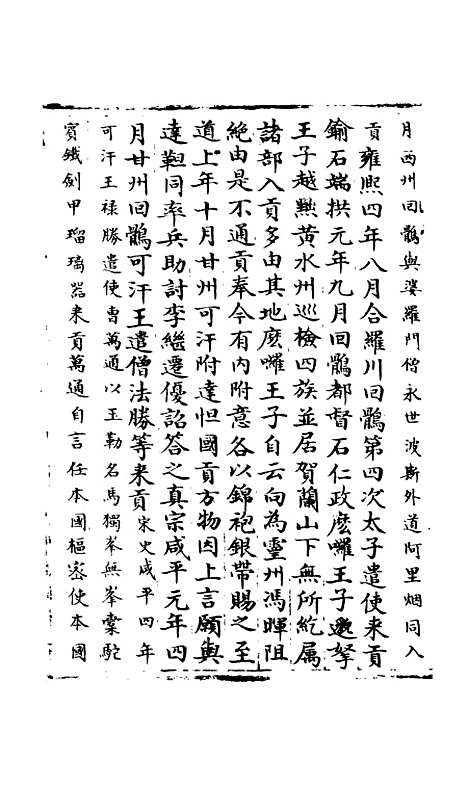 月西州回鶻與婆羅門僧永世波斯外道阿里烟同入
貢雍熙四年八月合羅川回鶻第四次太子遣使来貢
鍮石端拱元年九月回鶻都督石仁政麽囉王子邈拏
王子越黜黄水州巡檢四族並居賀蘭山下無所統属
諸部入貢多由其地麽囉王子自云向為靈州馮暉阻
絶由是不通貢奉今有内附意各以錦袍銀帶賜之至
道上年十月甘州可汗附達怛國貢方物因上言願與
達靼同率兵助討李繼遷優詔答之真宗咸平元年四
月甘州回鶻可汗王遣僧法勝等来貢宋史咸平四年
可汗王禄勝遣使曹萬通以玉勒名馬獨峯無峯槖駞
賓鐵劍甲瑠璃器来貢萬通自言任本國樞宻使本國